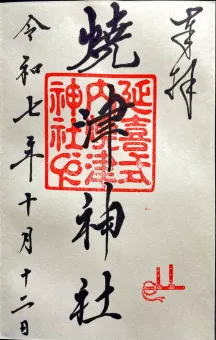 奉拝
焼津神社
延喜式
内津
神社
令和七年十月十二日